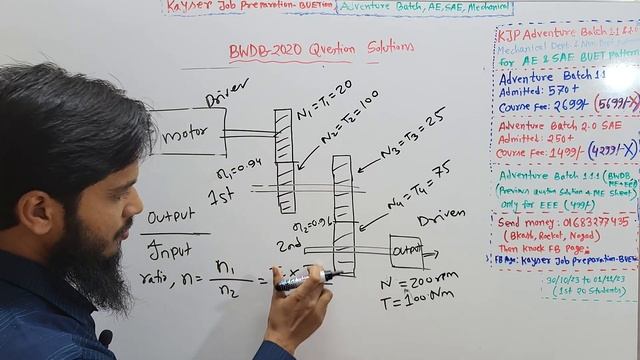 Kayser Job Preparation-BUETian Adventure Batch, AE, SAE, Mechanical
BWDB-2020 Question Solutions
Driver
motor
N₁=T₁=20
N₂=T₂=100
N₃=T₃=25
N₄=T₄=75
η₁=0.94
1st
η₂=0.96
2nd
Driven
Output
N=200rpm
T=100Nm
Output
Input
ratio, n = n₁/n₂ =
KJP Adventure Batch 1.1 & 2.0
Mechanical Dept.
for AE & SAE BUET pattern
Adventure Batch 1.1
Admitted: 570+
Course Fee: 2699/- (5699/-X)
Adventure Batch 2.0 SAE
Admitted: 250+
Course Fee: 1499/- (4299/-X)
Adventure Batch 1.1.1 (BWDB,
(Previous Question Solution & ME Sheet)
Only for EEE (499/-)
Send money: 01683277435
(Bkash, Rocket, Nagad)
Then Knock FB Page.
FB Page: Kayser Job Preparation-BUETian
30/10/23 to 01/11/23
(1st 20 Students)